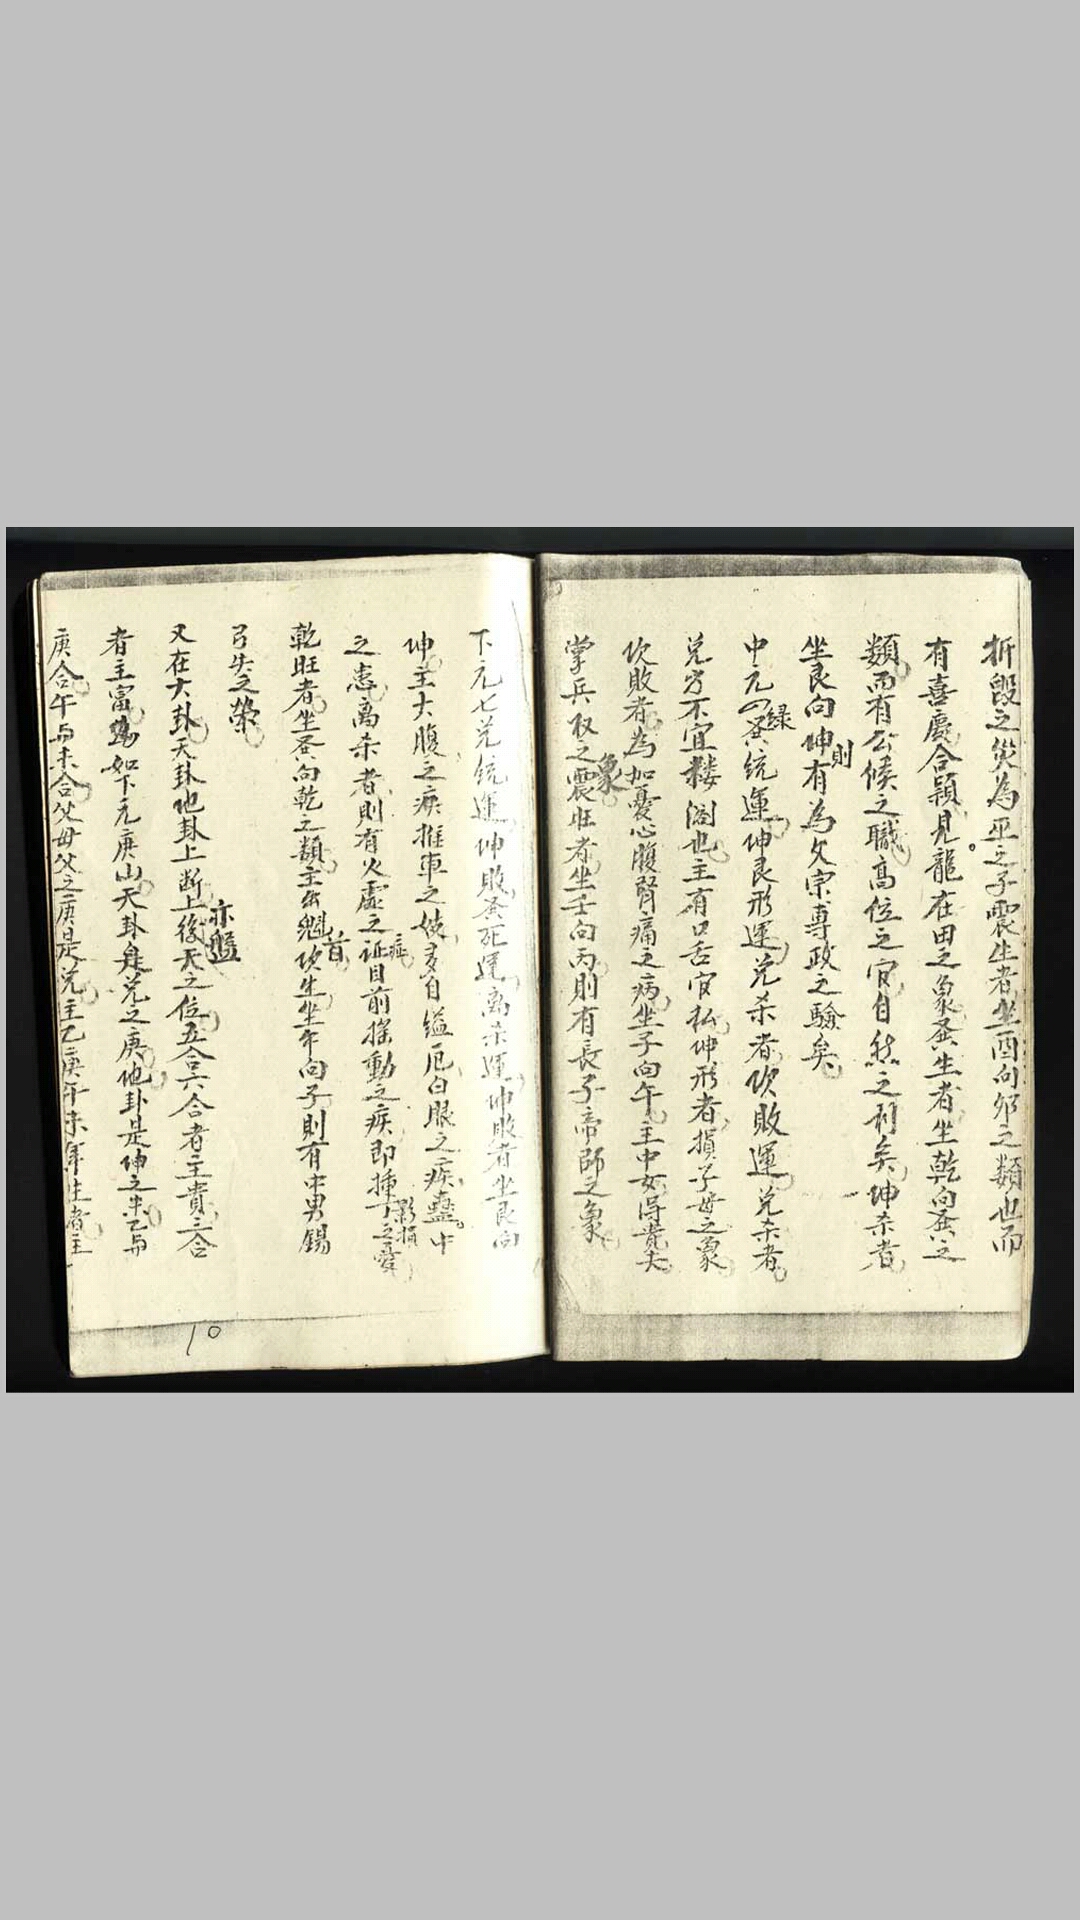 折毁之災為巫之子震生者坐酉向卯之類也而
有喜慶合穎見龍在田之象巽生者坐乾向巽之
類而有公候之職高位之官自然之利矣坤杀者
坐艮向坤有為文宗專政之驗矣
則
中元四巽統運坤艮形運兌杀者坎敗運兌杀者
綠
兌方不宜楼閣也主有口舌官私坤形者損子母之象
坎敗者為加憂心腹腎痛之病坐子向午主中女得貴夫
掌兵权之震旺者坐壬向丙則有長子帝師之象
象
下元七兌統運坤敗巽死運离杀運坤敗者坐艮向
坤主大腹之疾推車之妓多自缢厄白眼之疾蠱中
之患离杀者則有火虛之证目前搖動之疾即
症
影損
乾旺者坐巽向乾之類主魁坎生坐午向子則有中男錫
首
弓矢之榮
又在大卦天卦地卦上断上後天之位五合六合者主貴三合
亦盤
者主富如下元庚山天卦是兌之庚地卦是坤之未乙与
庚合午与未合父母父之庚是兌主乙庚午未年生者主
10